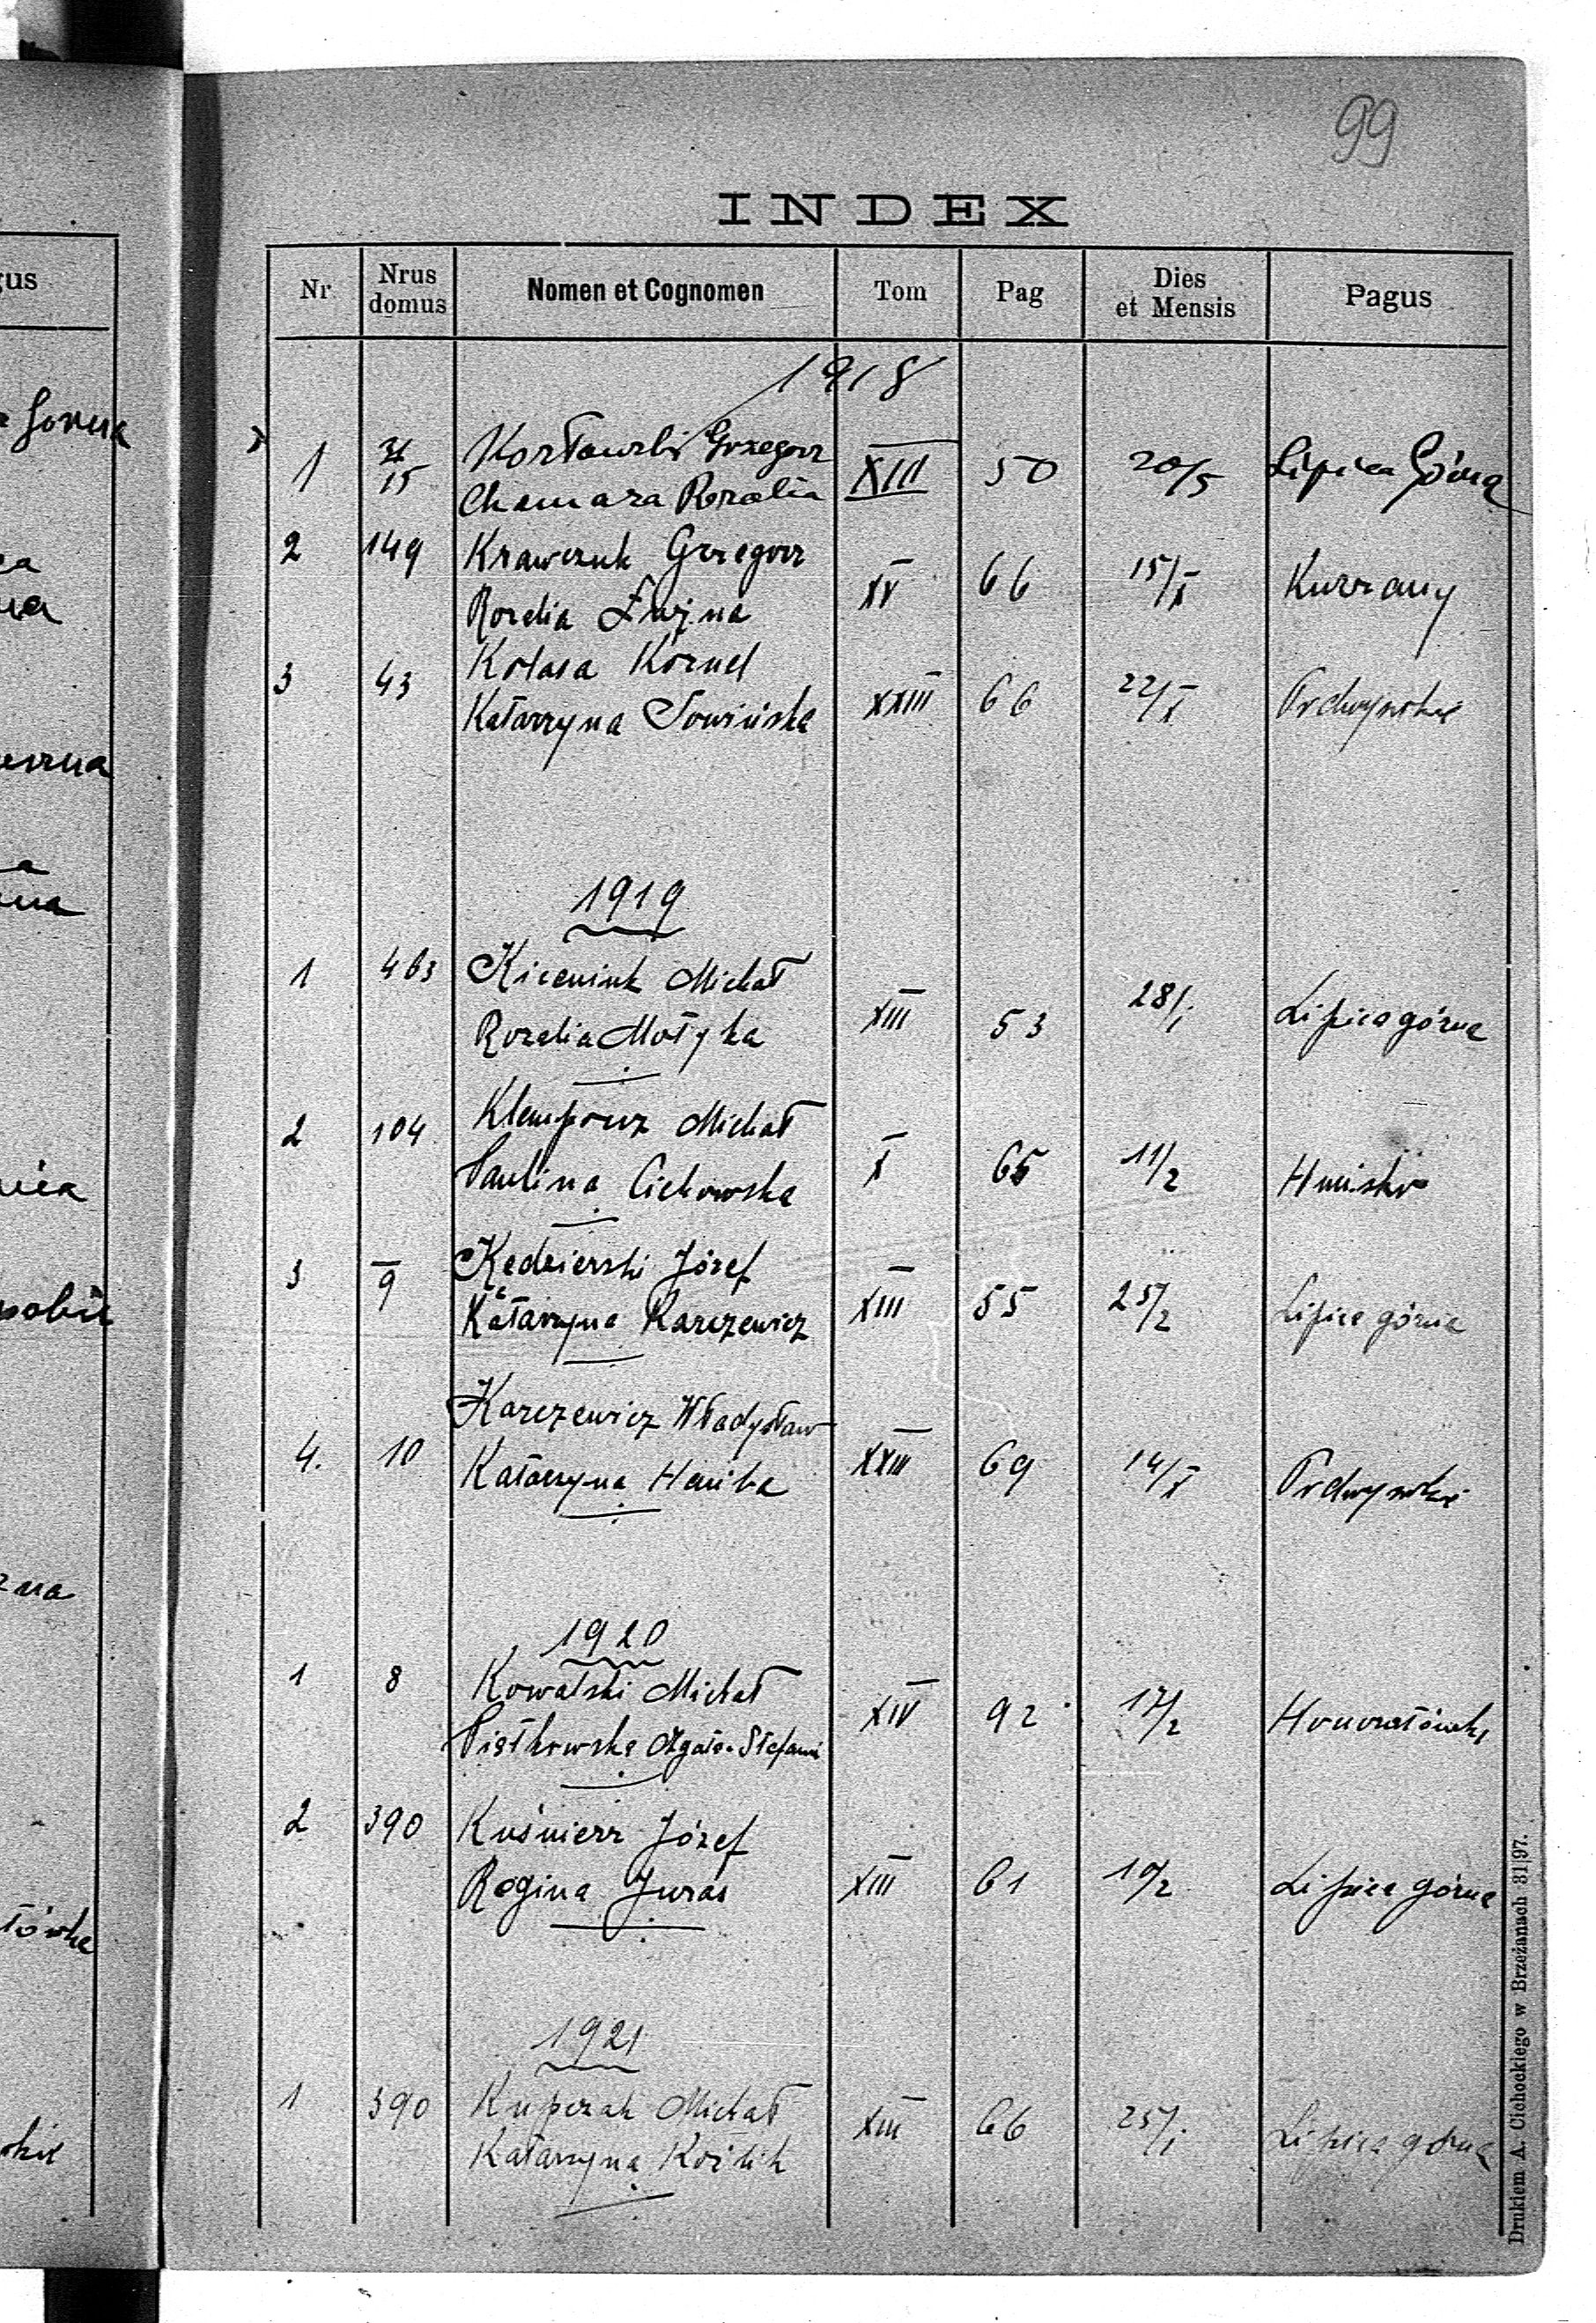 99
INDEX
Nr Nrus domus Nomen et Cognomen Tom Pag Dies et Mensis Pagus
1918
1 15 Grzegorz XIII 50 20/5 Lipica Górna
Chamara Rozalia
2 149 Krawczuk Grzegorz XV 66 15/X Kurzany
Rozalia
3 43 Kolasa Kornel XXIII 66 22/X
Katarzyna Sowińska
1919
1 463 Kiceniuk Michał XIII 53 28/I Lipica górna
Rozalia Motyka
2 104 Michał X 65 11/2
Paulina Cichowska
3 9 Kędzierski Józef XIII 55 25/2 Lipica górna
Katarzyna Karczewicz
4. 10 Karczewicz Władysław XXIII 69 14/X
Katarzyna
1920
1 8 Kowalski Michał XIV 92 17/2 Honoratówka
Piątkowska Agata-Stefania
2 390 Kuśnierz Józef XIII 61 10/2 Lipica górna
Regina Juraś
1921
1 390 Kupczak Michał XIII 66 25/I Lipica górna
Katarzyna
Drukiem A. Cichockiego w Brzeżanach 31|97.
gus